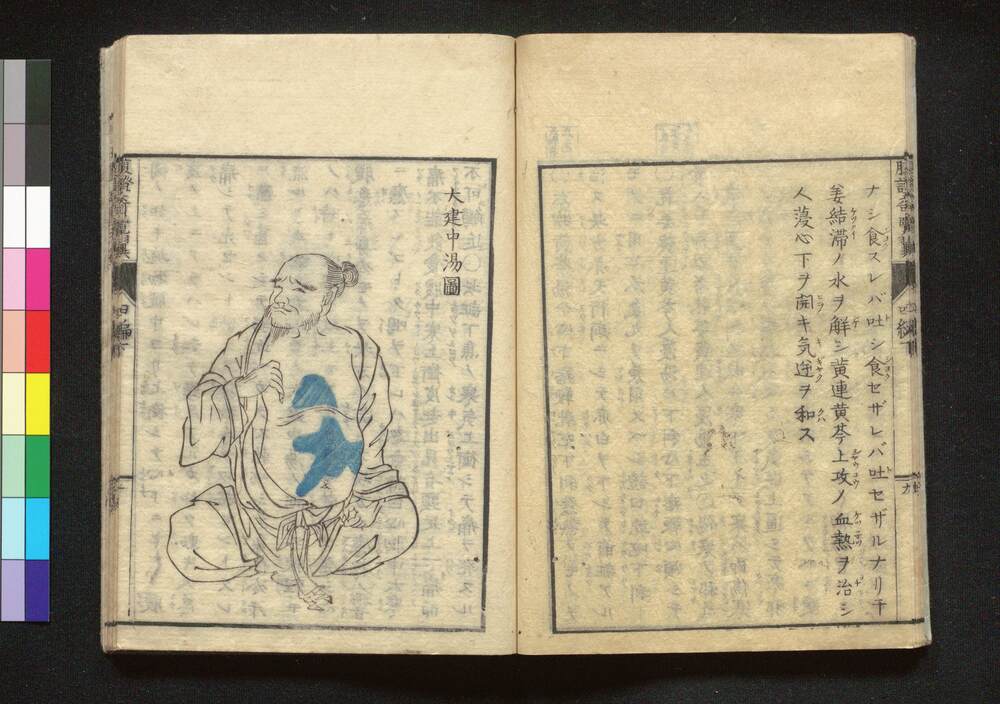 ナシ食スレバ吐シ食セザレバ吐セザルナリ干
姜結滞ノ水ヲ解シ黄連黄芩上攻ノ血熱ヲ治シ
人薓心下ヲ開キ気逆ヲ和ス
大建中湯圖
腹證奇覧翼
四編下